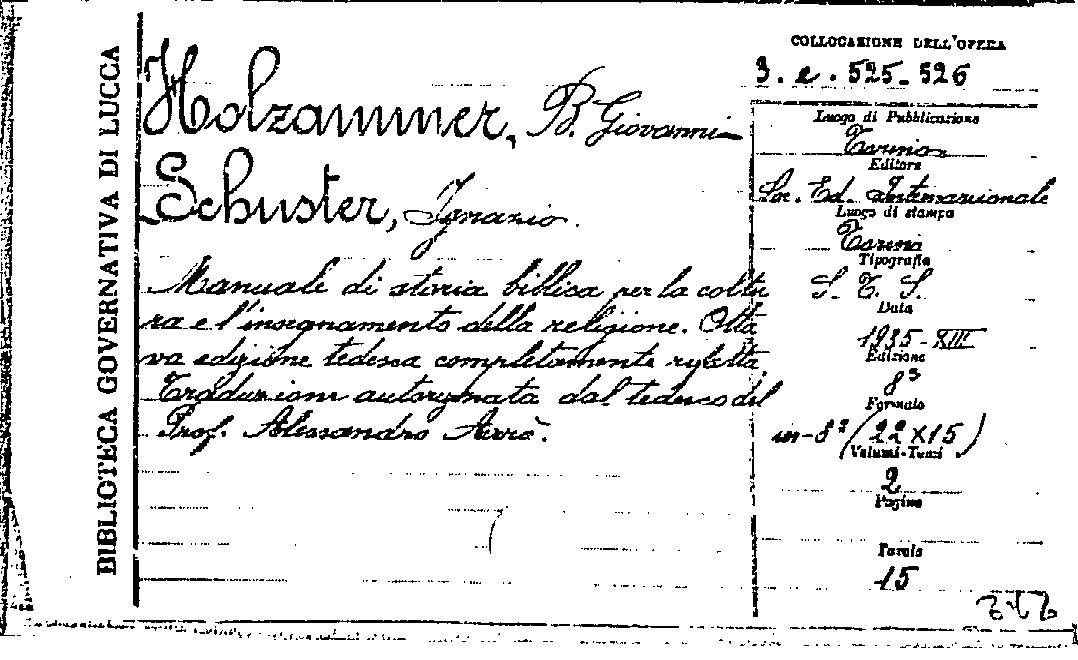 BIBLIOTECA GOVERNATIVA DI LUCCA
Holzammer, B. Giovanni
Schuster, Ignazio.
Manuale di storia biblica per la coltu
ra e l'insegnamento della religione. Otta
va edizione tedesca completamente rifatta.
Traduzione autorizzata dal tedesco del
Prof. Alessandro
COLLOCAZIONE DELL'OPERA
3. e. 525-526
Luogo di Pubblicazione
Torino
Editore
Soc. Ed. Internazionale
Luogo di stampa
Torino
Tipografia
S. E. I.
Data
1935-XIII
Edizione
8ª
Formato
in-8° (22 X 15)
Volumi-Tomi
2
Pagine
Tavole
15